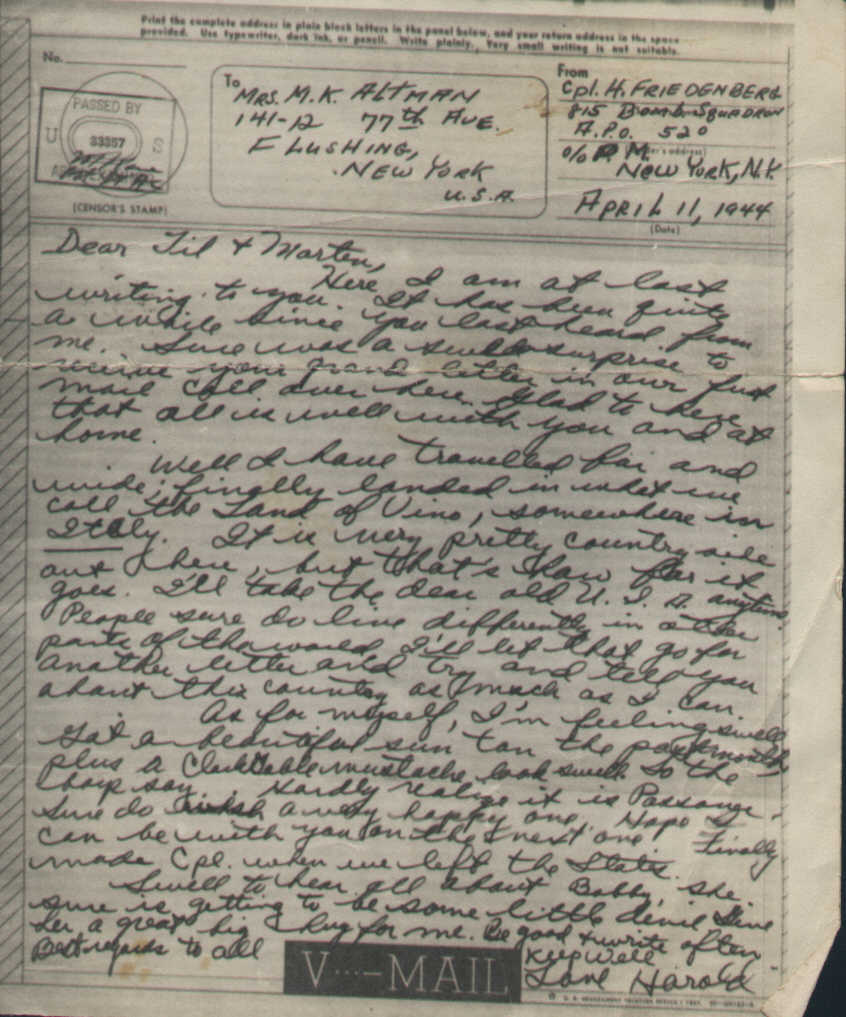 Print the complete address in plain block letters in the panel below, and your return address in the space
provided. Use typewriter, dark ink, or pencil. Write plainly. Very small writing is not suitable.
No.
PASSED BY
U 33357 S
(CENSOR'S STAMP)
To
MRS. M.K. ALTMAN
141-12 77th AVE.
FLUSHING,
NEW YORK
U.S.A.
From
Cpl. H. FRIEDENBERG
815 BOMB. SQUADRON
A.P.O. 520
c/o P.M.
NEW YORK, N.Y.
APRIL 11, 1944
(Date)
Dear Til + Marten,
Here I am at last
writing to you. It has been quite
a while since you last heard from
me. Sure was a swell surprise to
receive your grand letter in our first
mail call over here. Glad to hear
that all is well with you and at
home.
Well I have travelled far and
wide, finally landed in what we
call the Land of Vino, somewhere in
Italy. It is very pretty country side
out here, but that's how far it
goes. I'll take the dear old U.S.A. anytime.
People sure do live differently in other
parts of the world. I'll let that go for
another letter and try and tell you
about this country as much as I can.
As for myself, I'm feeling swell
Got a beautiful sun tan the past month,
plus a Clark Gable mustache look swell so the
boys say. Hardly realize it is Passover.
Sure do wish a very happy one, Hope I
can be with you on the next one. Finally
made Cpl. when we left the States.
Swell to hear all about Bobby, she
sure is getting to be some little devil Give
her a great big hug for me. Be good + write often
Best regards to all Keep well
Love Harold
V···—MAIL